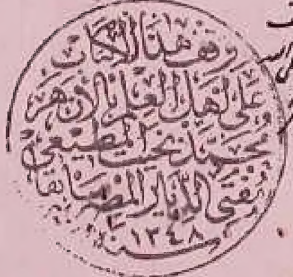 وقف هذا الكتاب
على أهل العلم بالأزهر
محمد بخيت المطيعي
مفتي الديار المصرية سابقا
سنة ١٣٤٨